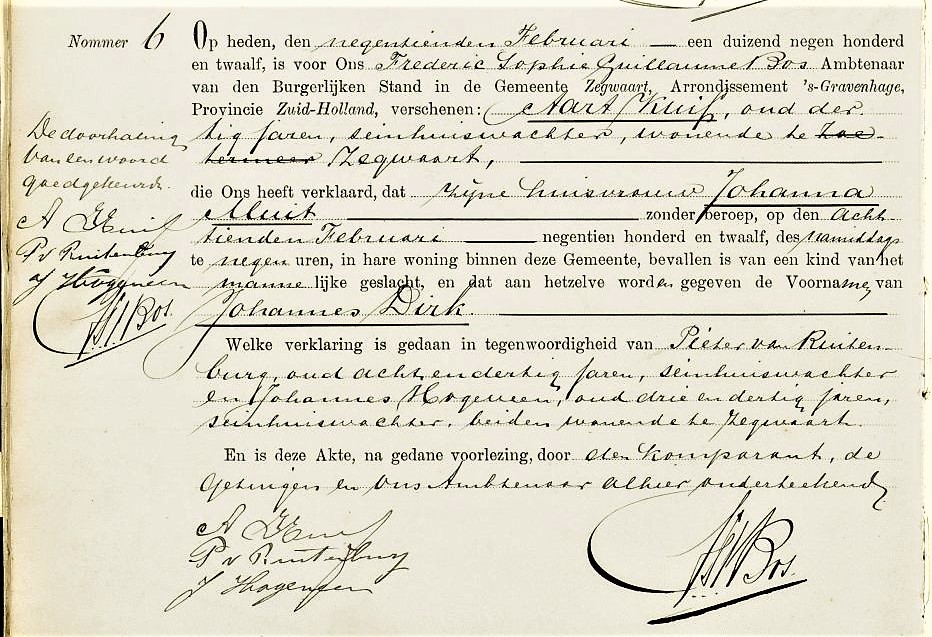 Nommer 6
Op heden, den negentienden Februari — een duizend negen honderd
en twaalf, is voor Ons Frederic Sophie Guillaume Bos Ambtenaar
van den Burgerlijken Stand in de Gemeente Zegwaart, Arrondissement 's-Gravenhage,
Provincie Zuid-Holland, verschenen: Aart Kuif, oud der
tig jaren, seinhuiswachter, wonende te Zoe
termeer Zegwaart,
die Ons heeft verklaard, dat zijne huisvrouw Johanna
Muit zonder beroep, op den acht
tienden Februari — negentien honderd en twaalf, des namiddags
te negen uren, in hare woning binnen deze Gemeente, bevallen is van een kind van het
manne lijke geslacht, en dat aan hetzelve worden gegeven de Voornamen van
Johannes Dirk.
Welke verklaring is gedaan in tegenwoordigheid van Pieter van Ruiten-
burg, oud acht en dertig jaren, seinhuiswachter
en Johannes Hogeveen, oud drie en dertig jaren,
seinhuiswachter, beiden wonende te Zegwaart.
En is deze Akte, na gedane voorlezing, door den komparant, de
getuigen en ons Ambtenaar alhier onderteekend,
A Kuif
P v Ruitenburg
J Hogeveen
Bos.
De doorhaling
van een woord
goedgekeurd.
A Kuif
P v Ruitenburg
J Hogeveen
Bos.